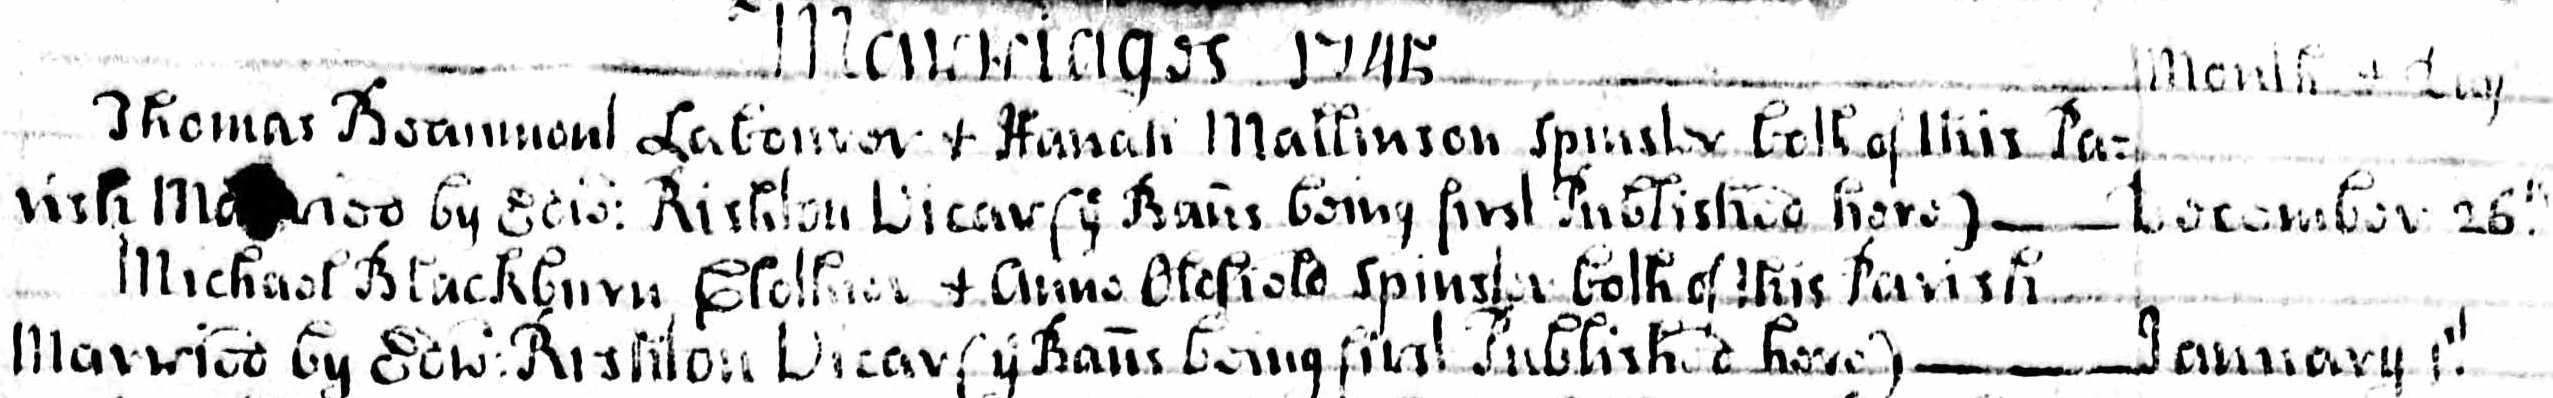 Marriages 1745
Month + day
Thomas Beaumont Labourer + Hanah Mallinson Spinster both of this Pa=
rish Married by Edw: Rishton Vicar (ÿ Bañs being first Published here) — December 26th
Michael Blackburn Clothier + Anne Oldfield Spinster both of this Parish
Married by Edw: Rishton Vicar (ÿ Bañs being first Published here) — January 1st